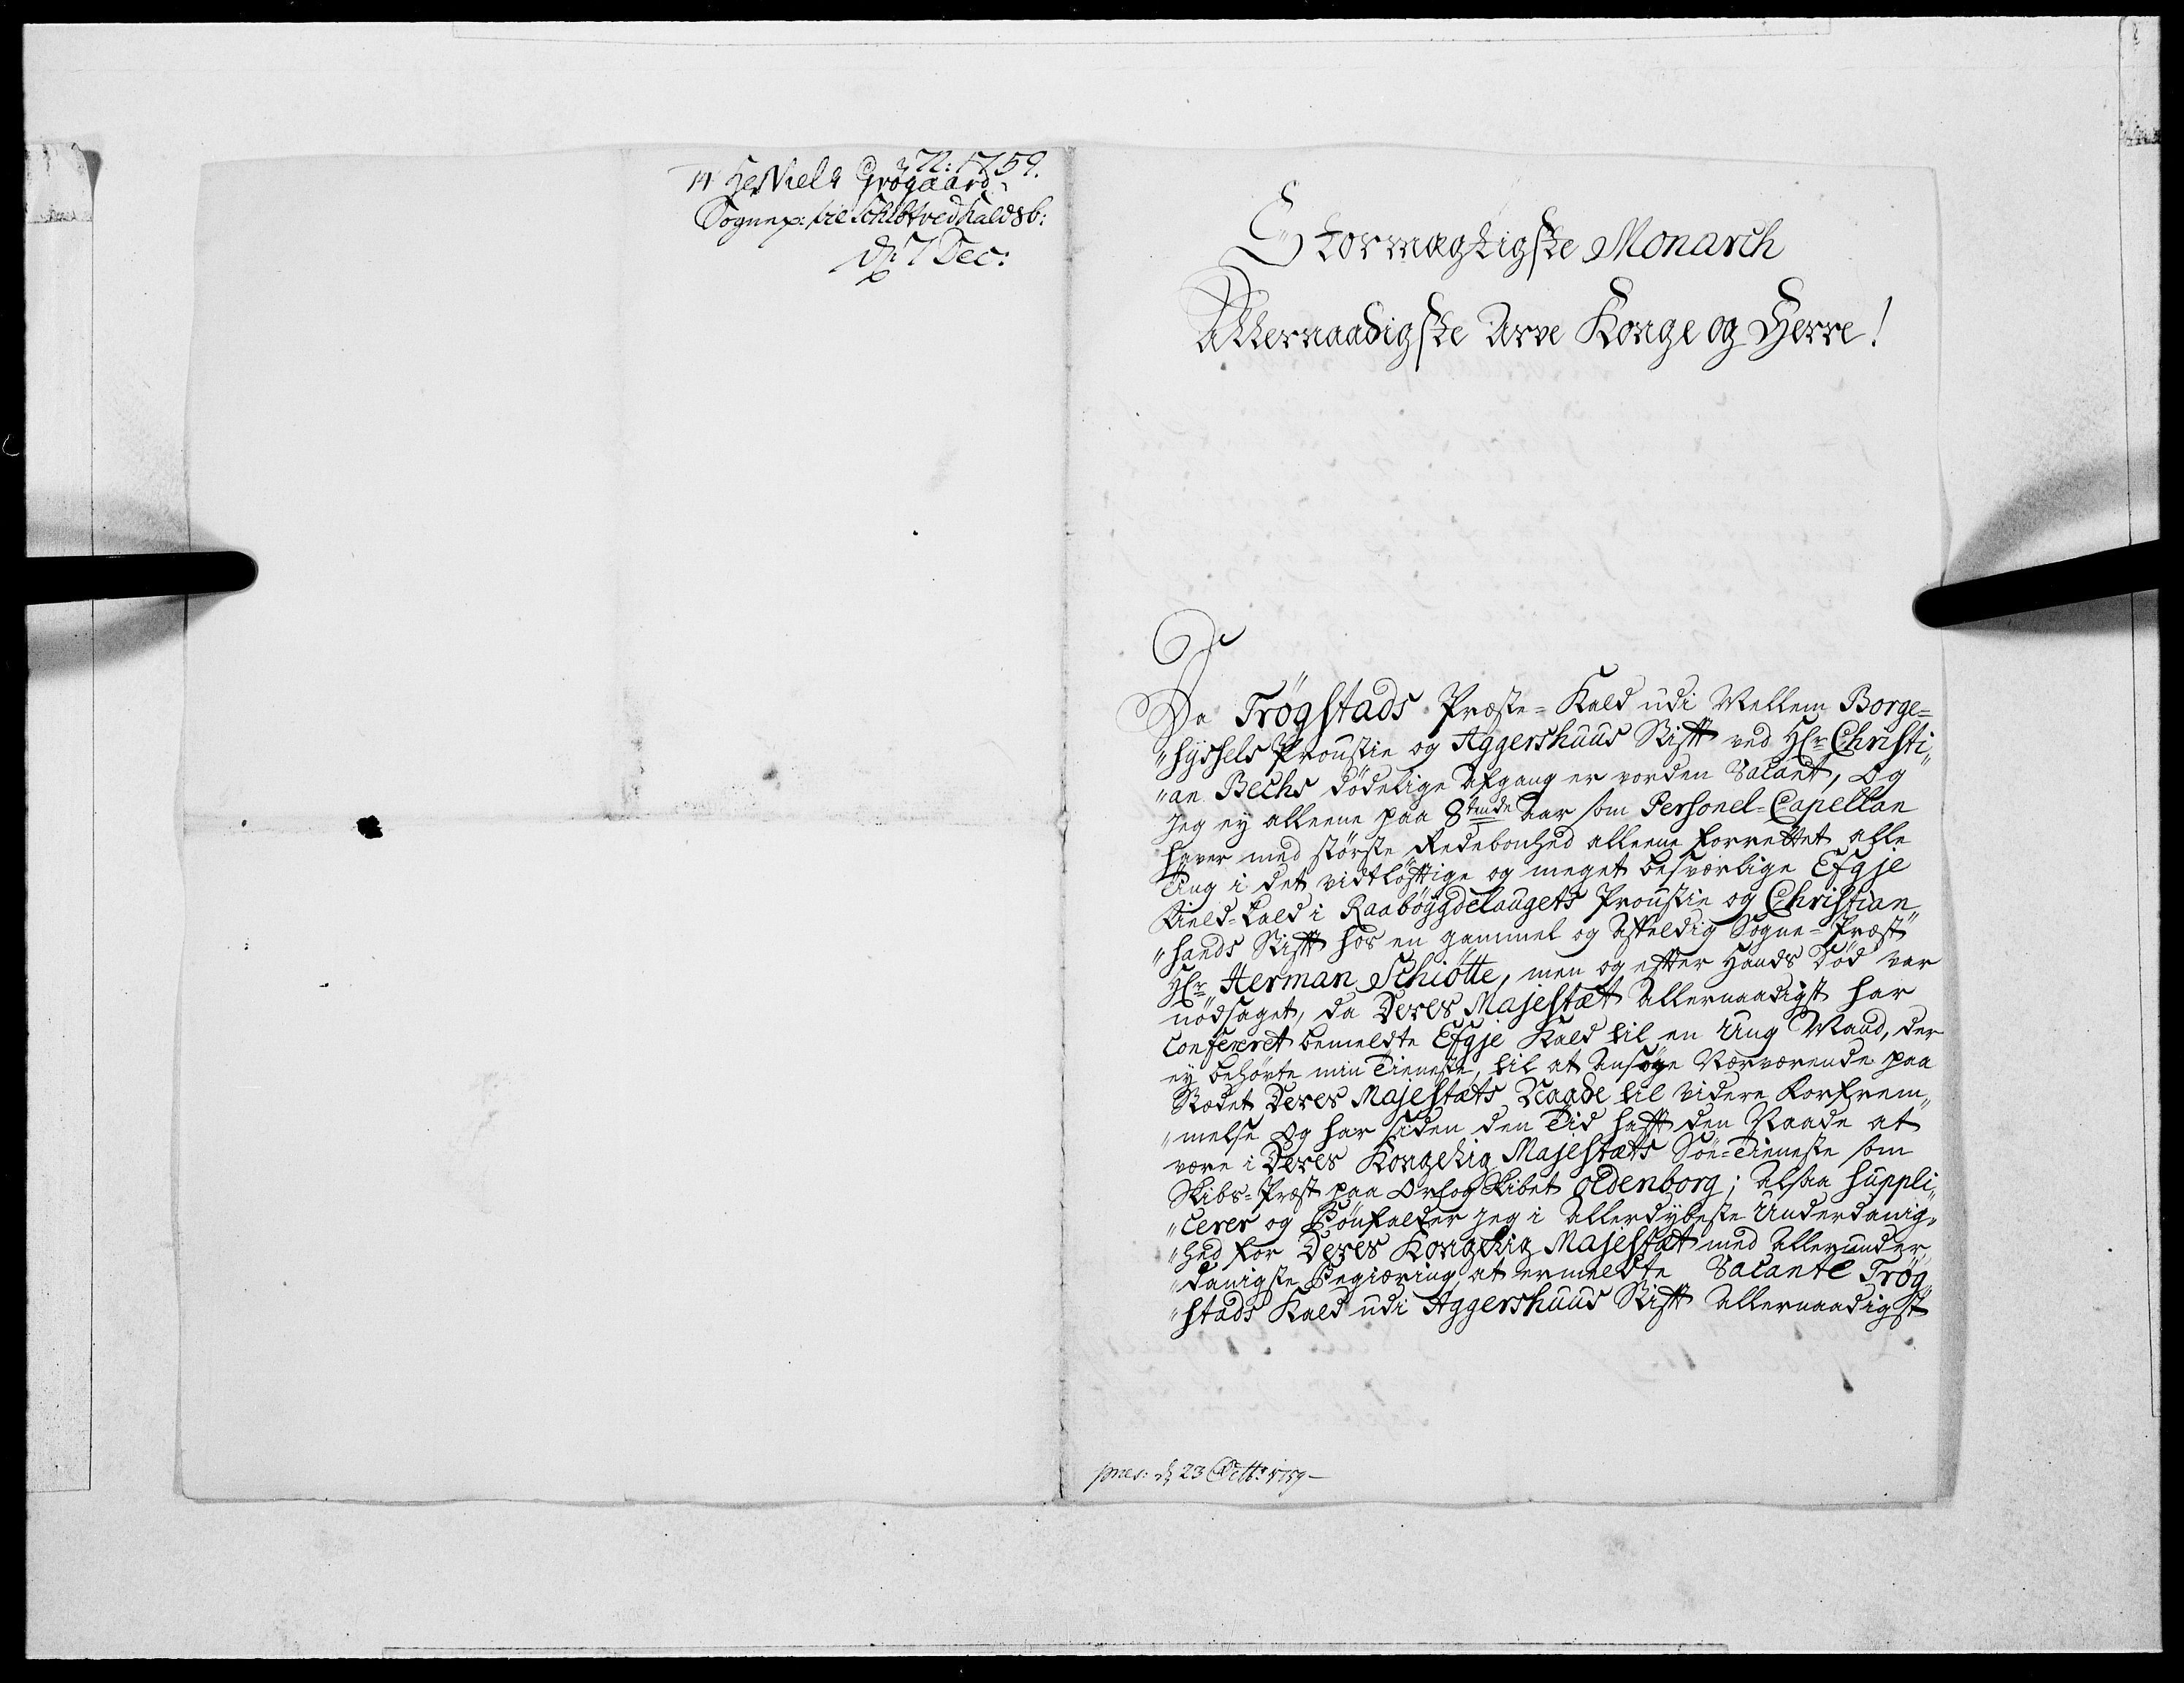 N: 1759.
14 Hr Niels Grögaard
Sognepr: til Schibtved kaldsb:
d: 7 Dec:
Stormægtigste Monarch
Allernaadigste Arve Konge og Herre!
Da Trögstads Præste-Kald udi Mellem Borge=
„hyssels Proustie og Aggershuus Stift ved Hr Christi„
„an Bechs dödelige Afgang er vorden Vacant, Og
jeg ey alleene paa 8tende Aar som Personel-Capellan
haver med störste Redebonhed alleene forrettet alle
Ting i det vidtlöftige og meget besværlige Efgje
Field-Kald i Raabögdelaugets Proustie og Christian„
„hands Stift hos en gammel og affeldig Sogne-Præst
Hr Herman Schiötte, men og efter Hands Död var
nödsaget, da Deres Majestæt Allernaadigst har
confereret bemeldte Efgje Kald til en Ung Mand, der
ey behövte min Tieneste, til at Ansöge Nærværende paa
Stædet Deres Majestæts Naade til videre Forfrem„
„melse Og har siden den Tid haft den Naade at
være i Deres Kongelig Majestæts Söe-Tieneste som
Skibs-Præst paa Orlog Skibet Oldenborg; Altsaa Suppli„
„cerer og Bönfalder jeg i Allerdybeste Underdanig„
„hed for Deres Kongelig Majestæt med Allerunder„
„danigste Begiæring, at ermeldte Vacante Trög„
„stads Kald udi Aggershuus Stift Allernaadigst
præs: d 23 Octbr 1759